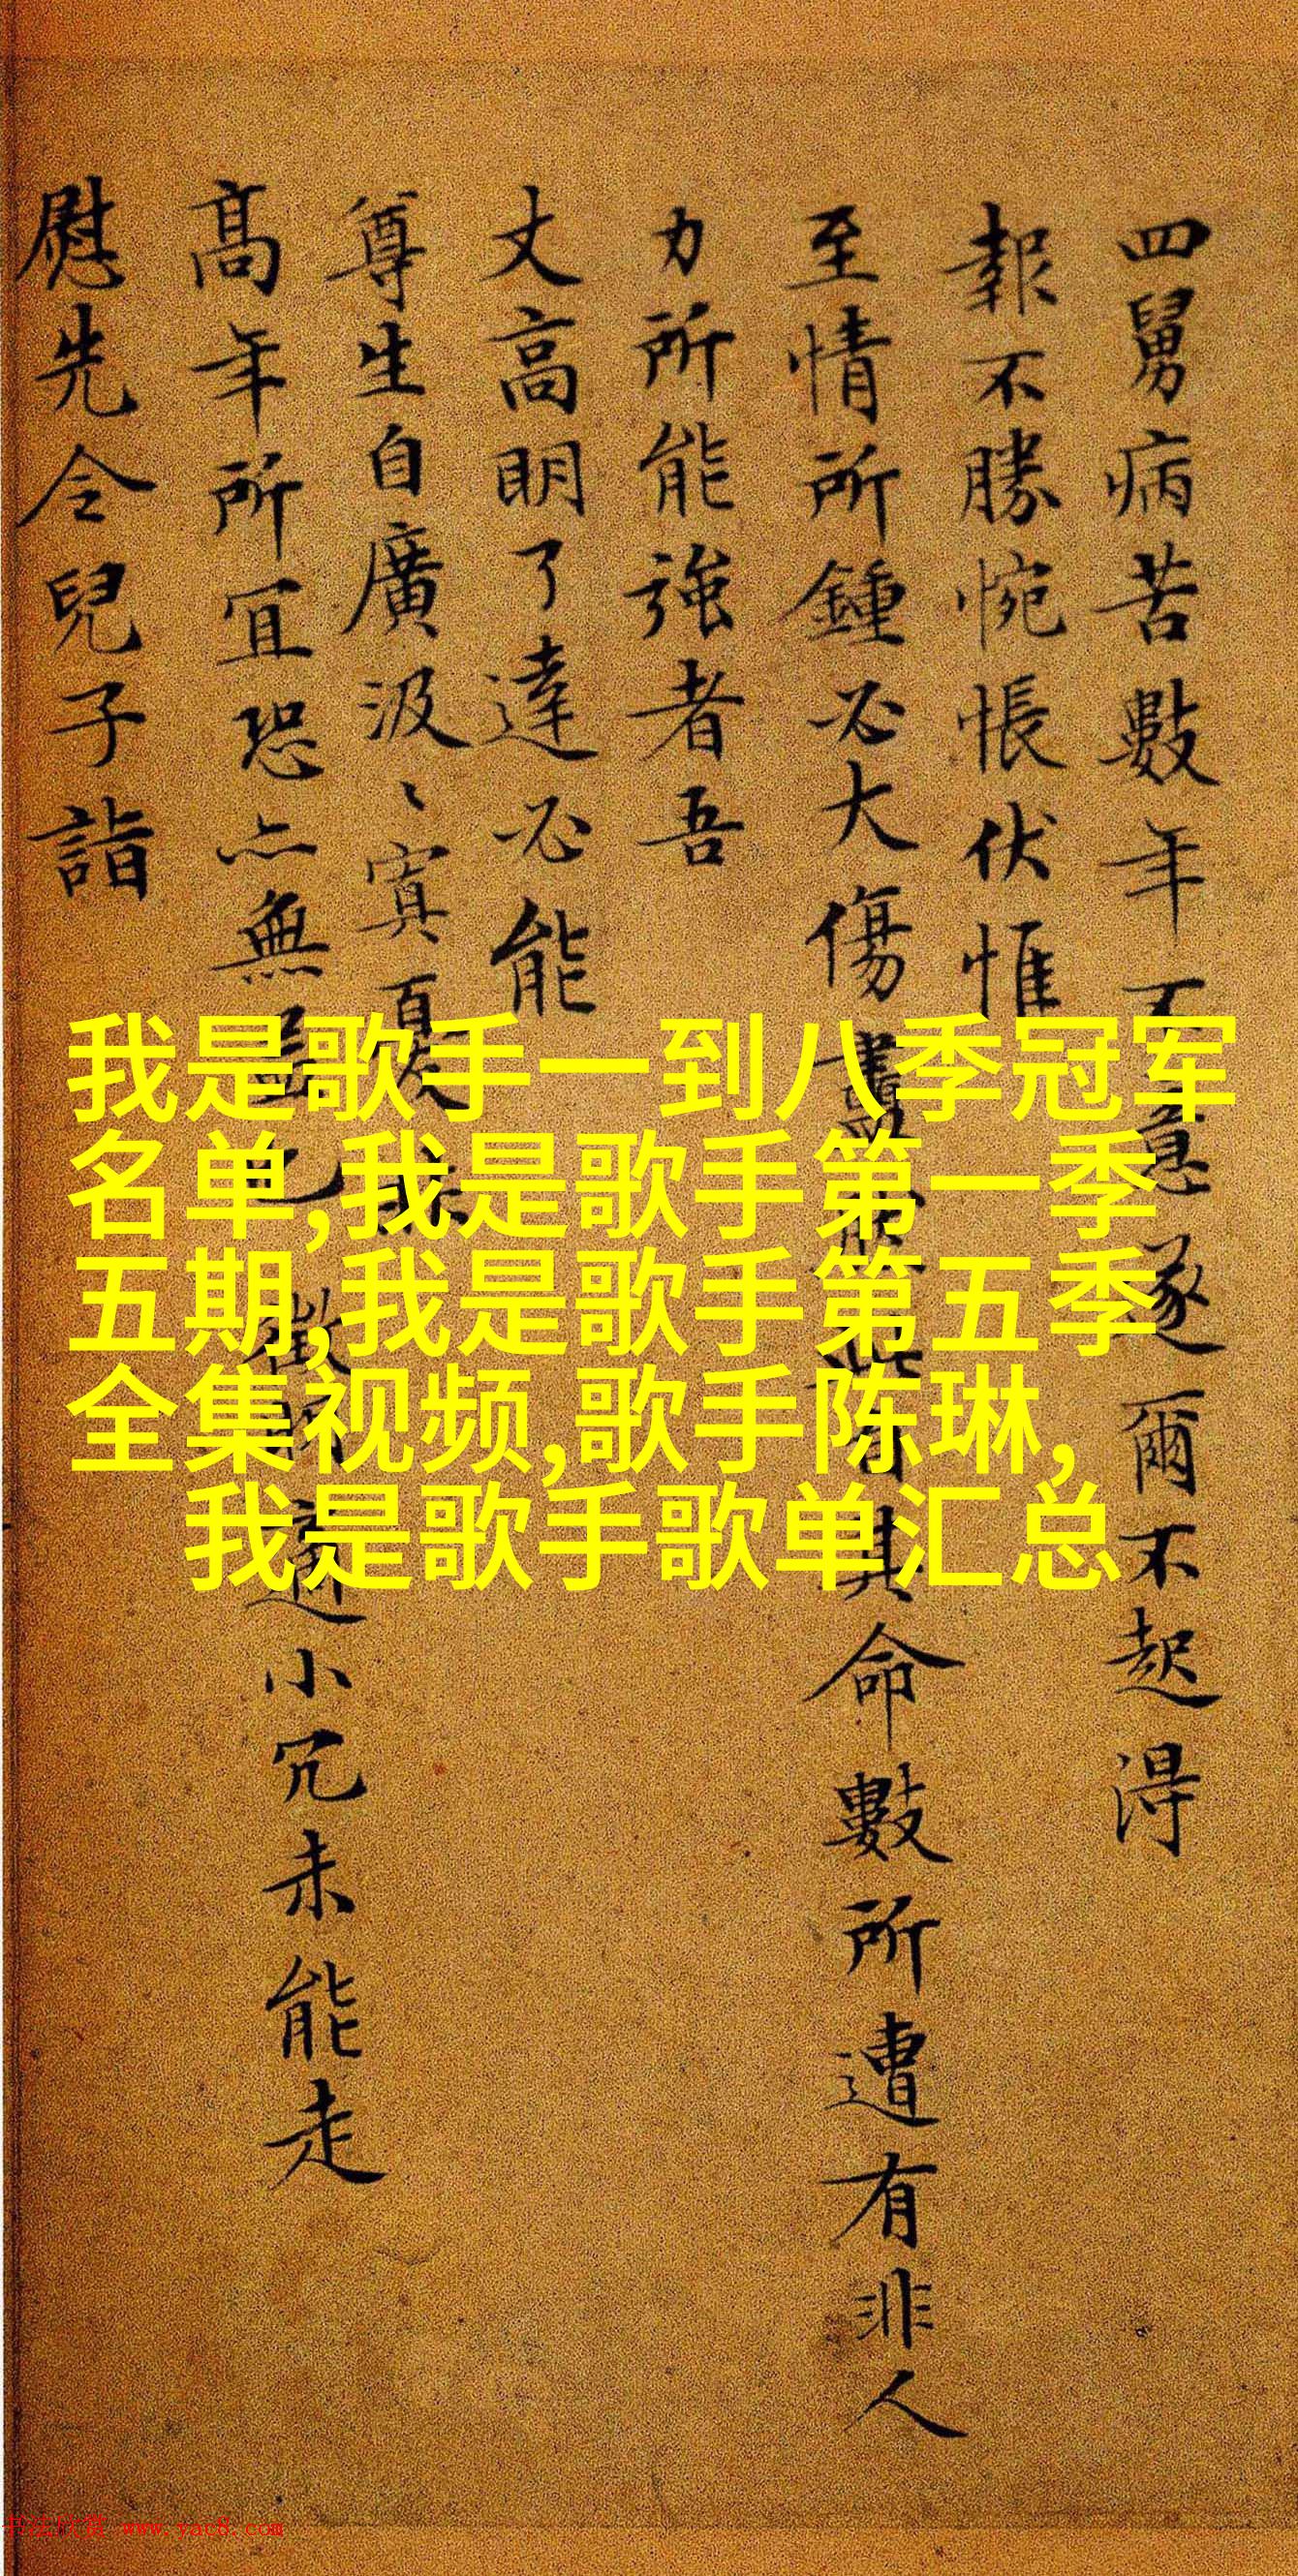 四舅病苦數年不
遂爾不起得
報不勝惋悵伏惟
至情所鍾必大傷
其命數所遭有非人
力所能強者吾
丈高明了達必能
尊生自廣汲〻寘
高年所宜恐亦無
小冗未能走
慰先令兒子詣
我是歌手一到八季冠军
名单,我是歌手第一季
五期,我是歌手第五季
全集视频,歌手陈琳,
我是歌手歌单汇总
书法欣赏 www.yac8.com